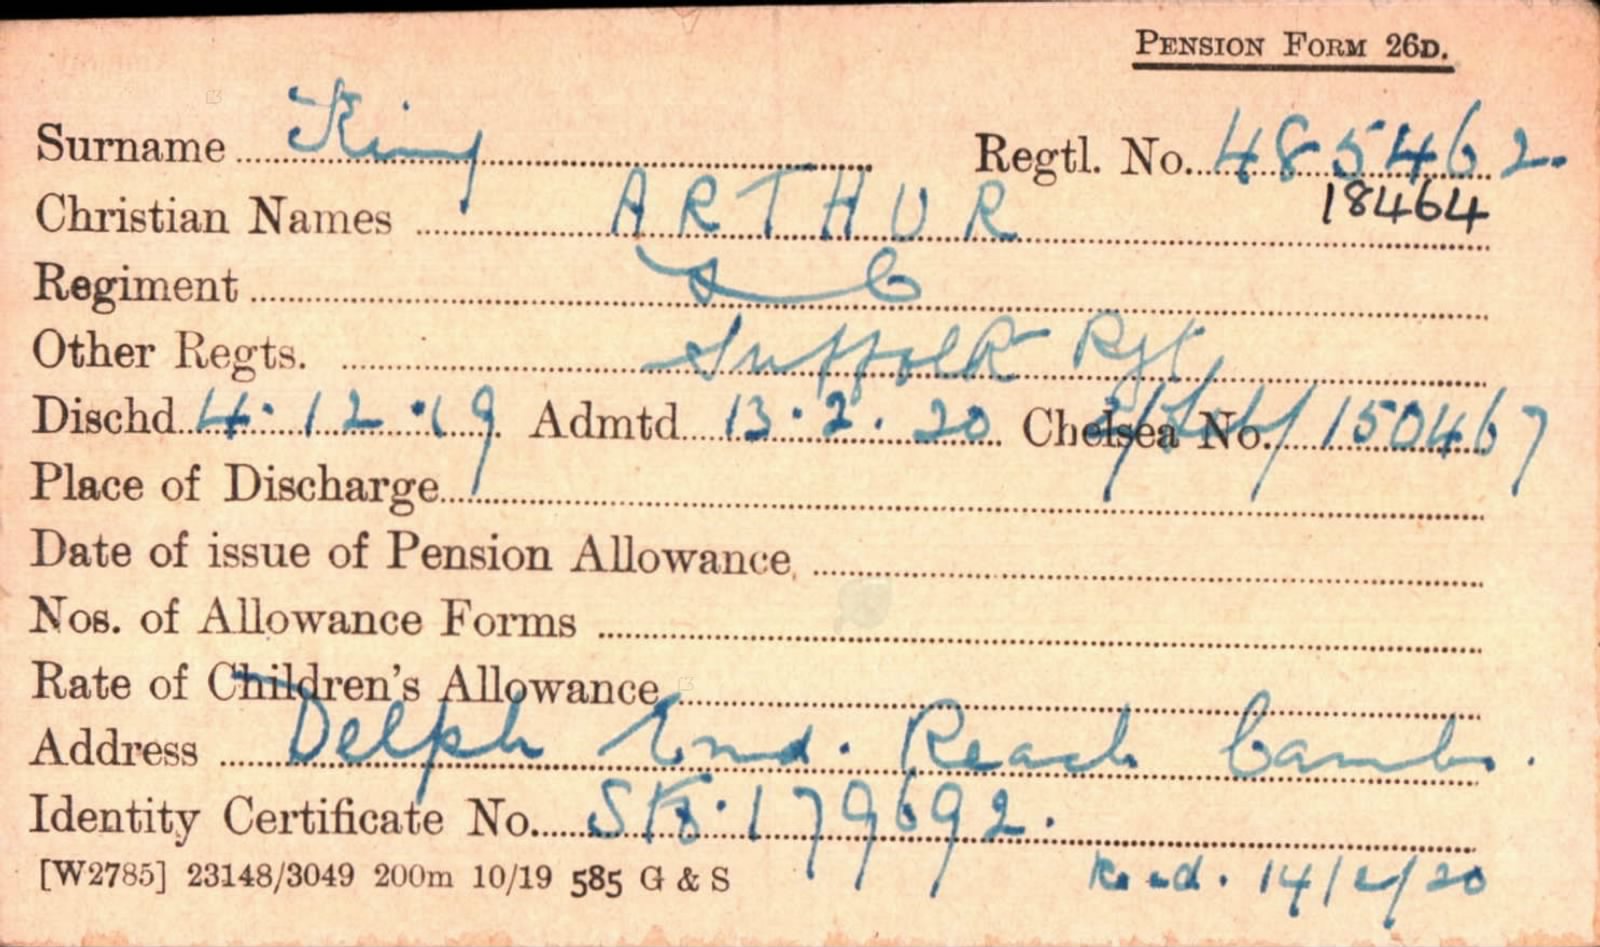 PENSION FORM 26D.
Surname King Regtl. No. 485462.
18464
Christian Names ARTHUR
Regiment L C
Other Regts. Suffolk Rgt
Dischd 4.12.19 Admtd 13.2.20 Chelsea No. 150467
Place of Discharge
Date of issue of Pension Allowance
Nos. of Allowance Forms
Rate of Children's Allowance
Address Delph End. Reach Cambs.
Identity Certificate No. 179692.
[W2785] 23148/3049 200m 10/19 585 G & S
14/2/20